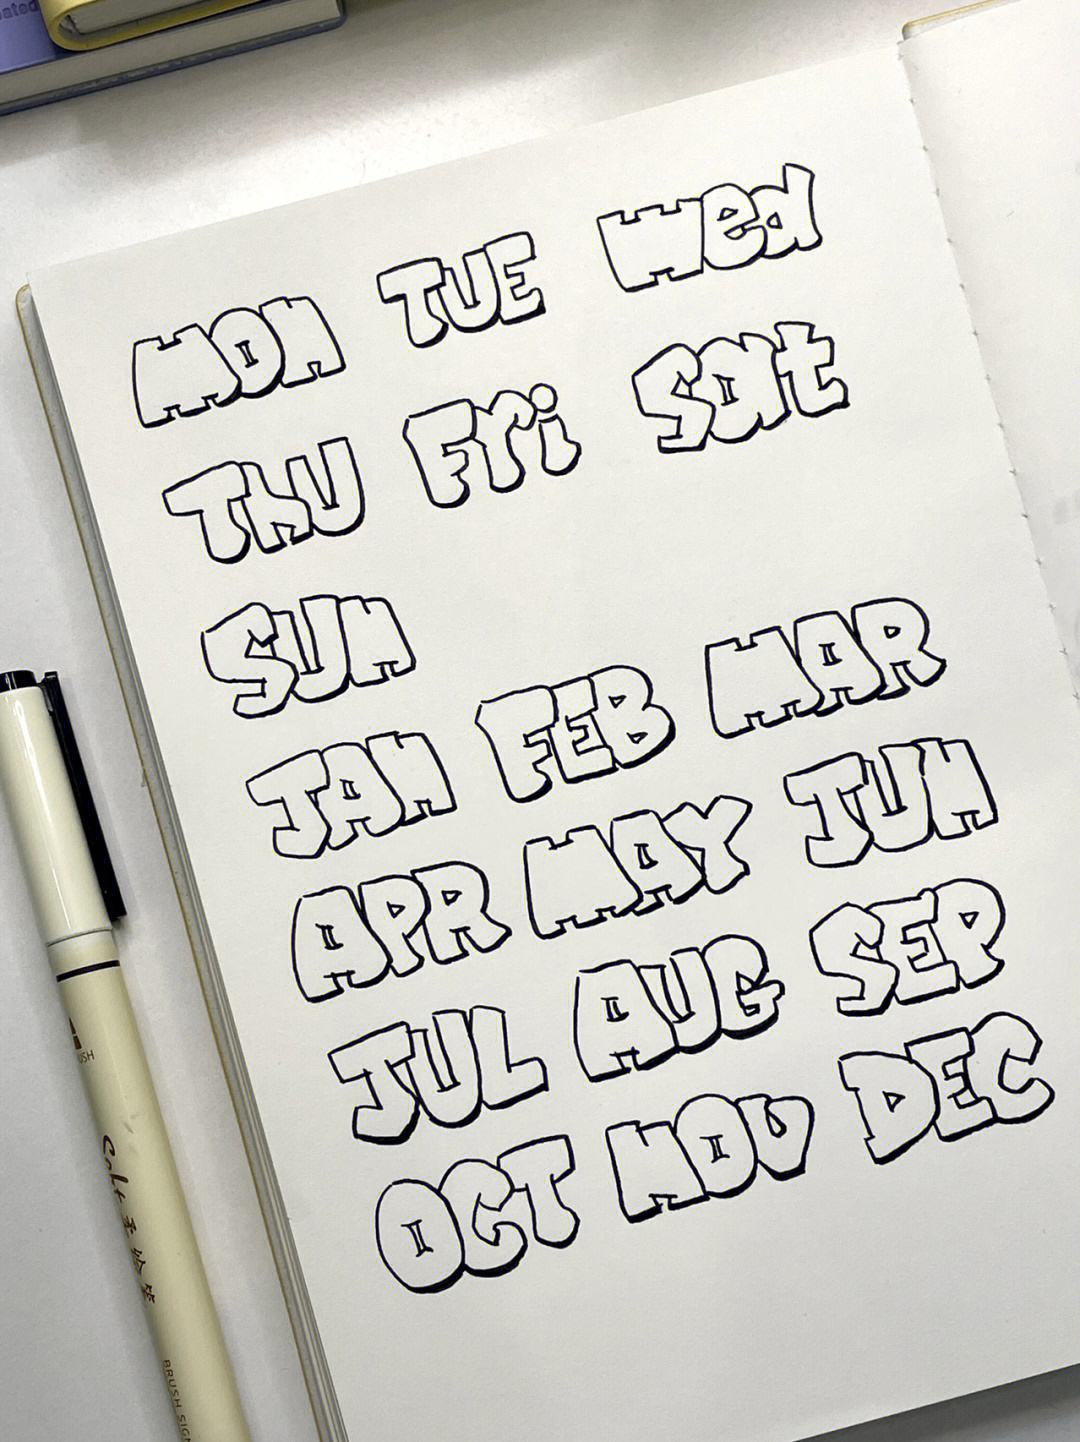 MON TUE Wed
THU Fri Sat
SUN
JAN FEB MAR
APR MAY JUN
JUL AUG SEP
OCT NOV DEC
BRUSH SIGN